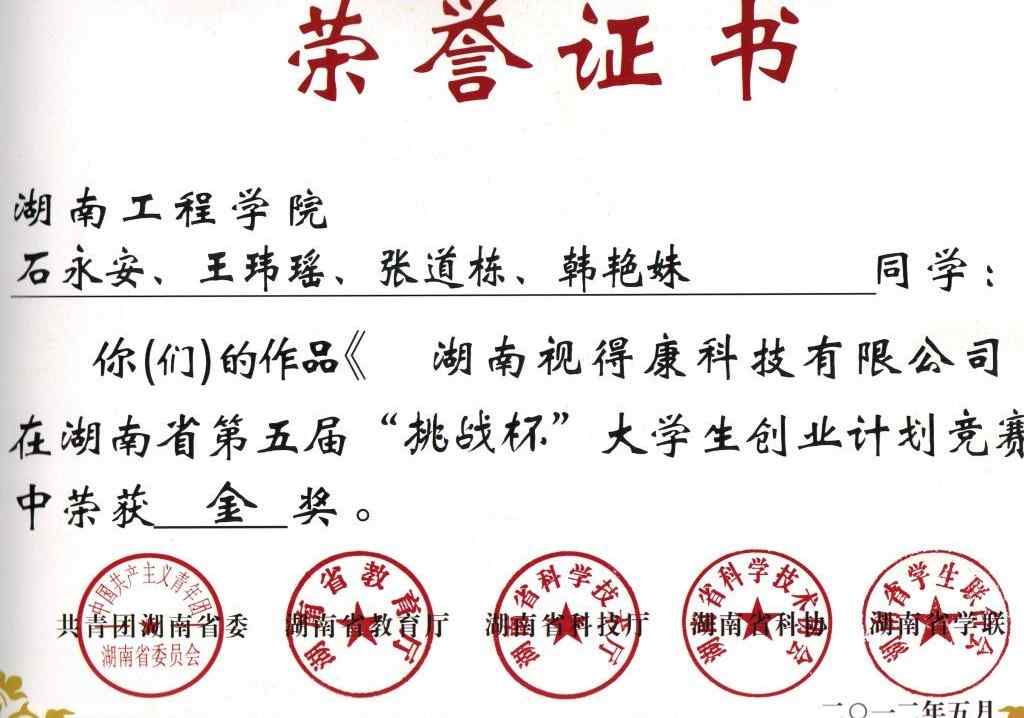 荣誉证书
湖南工程学院
石永安、王玮瑶、张道栋、韩艳妹 同学：
你(们)的作品《 湖南视得康科技有限公司
在湖南省第五届“挑战杯”大学生创业计划竞赛
中荣获 金 奖。
中国共产主义青年团 湖南省教育厅 湖南省科学技术厅 湖南省科学技术协会 湖南省学生联合会
共青团湖南省委 湖南省教育厅 湖南省科技厅 湖南省科协 湖南省学联
湖南省委员会
二〇一二年五月